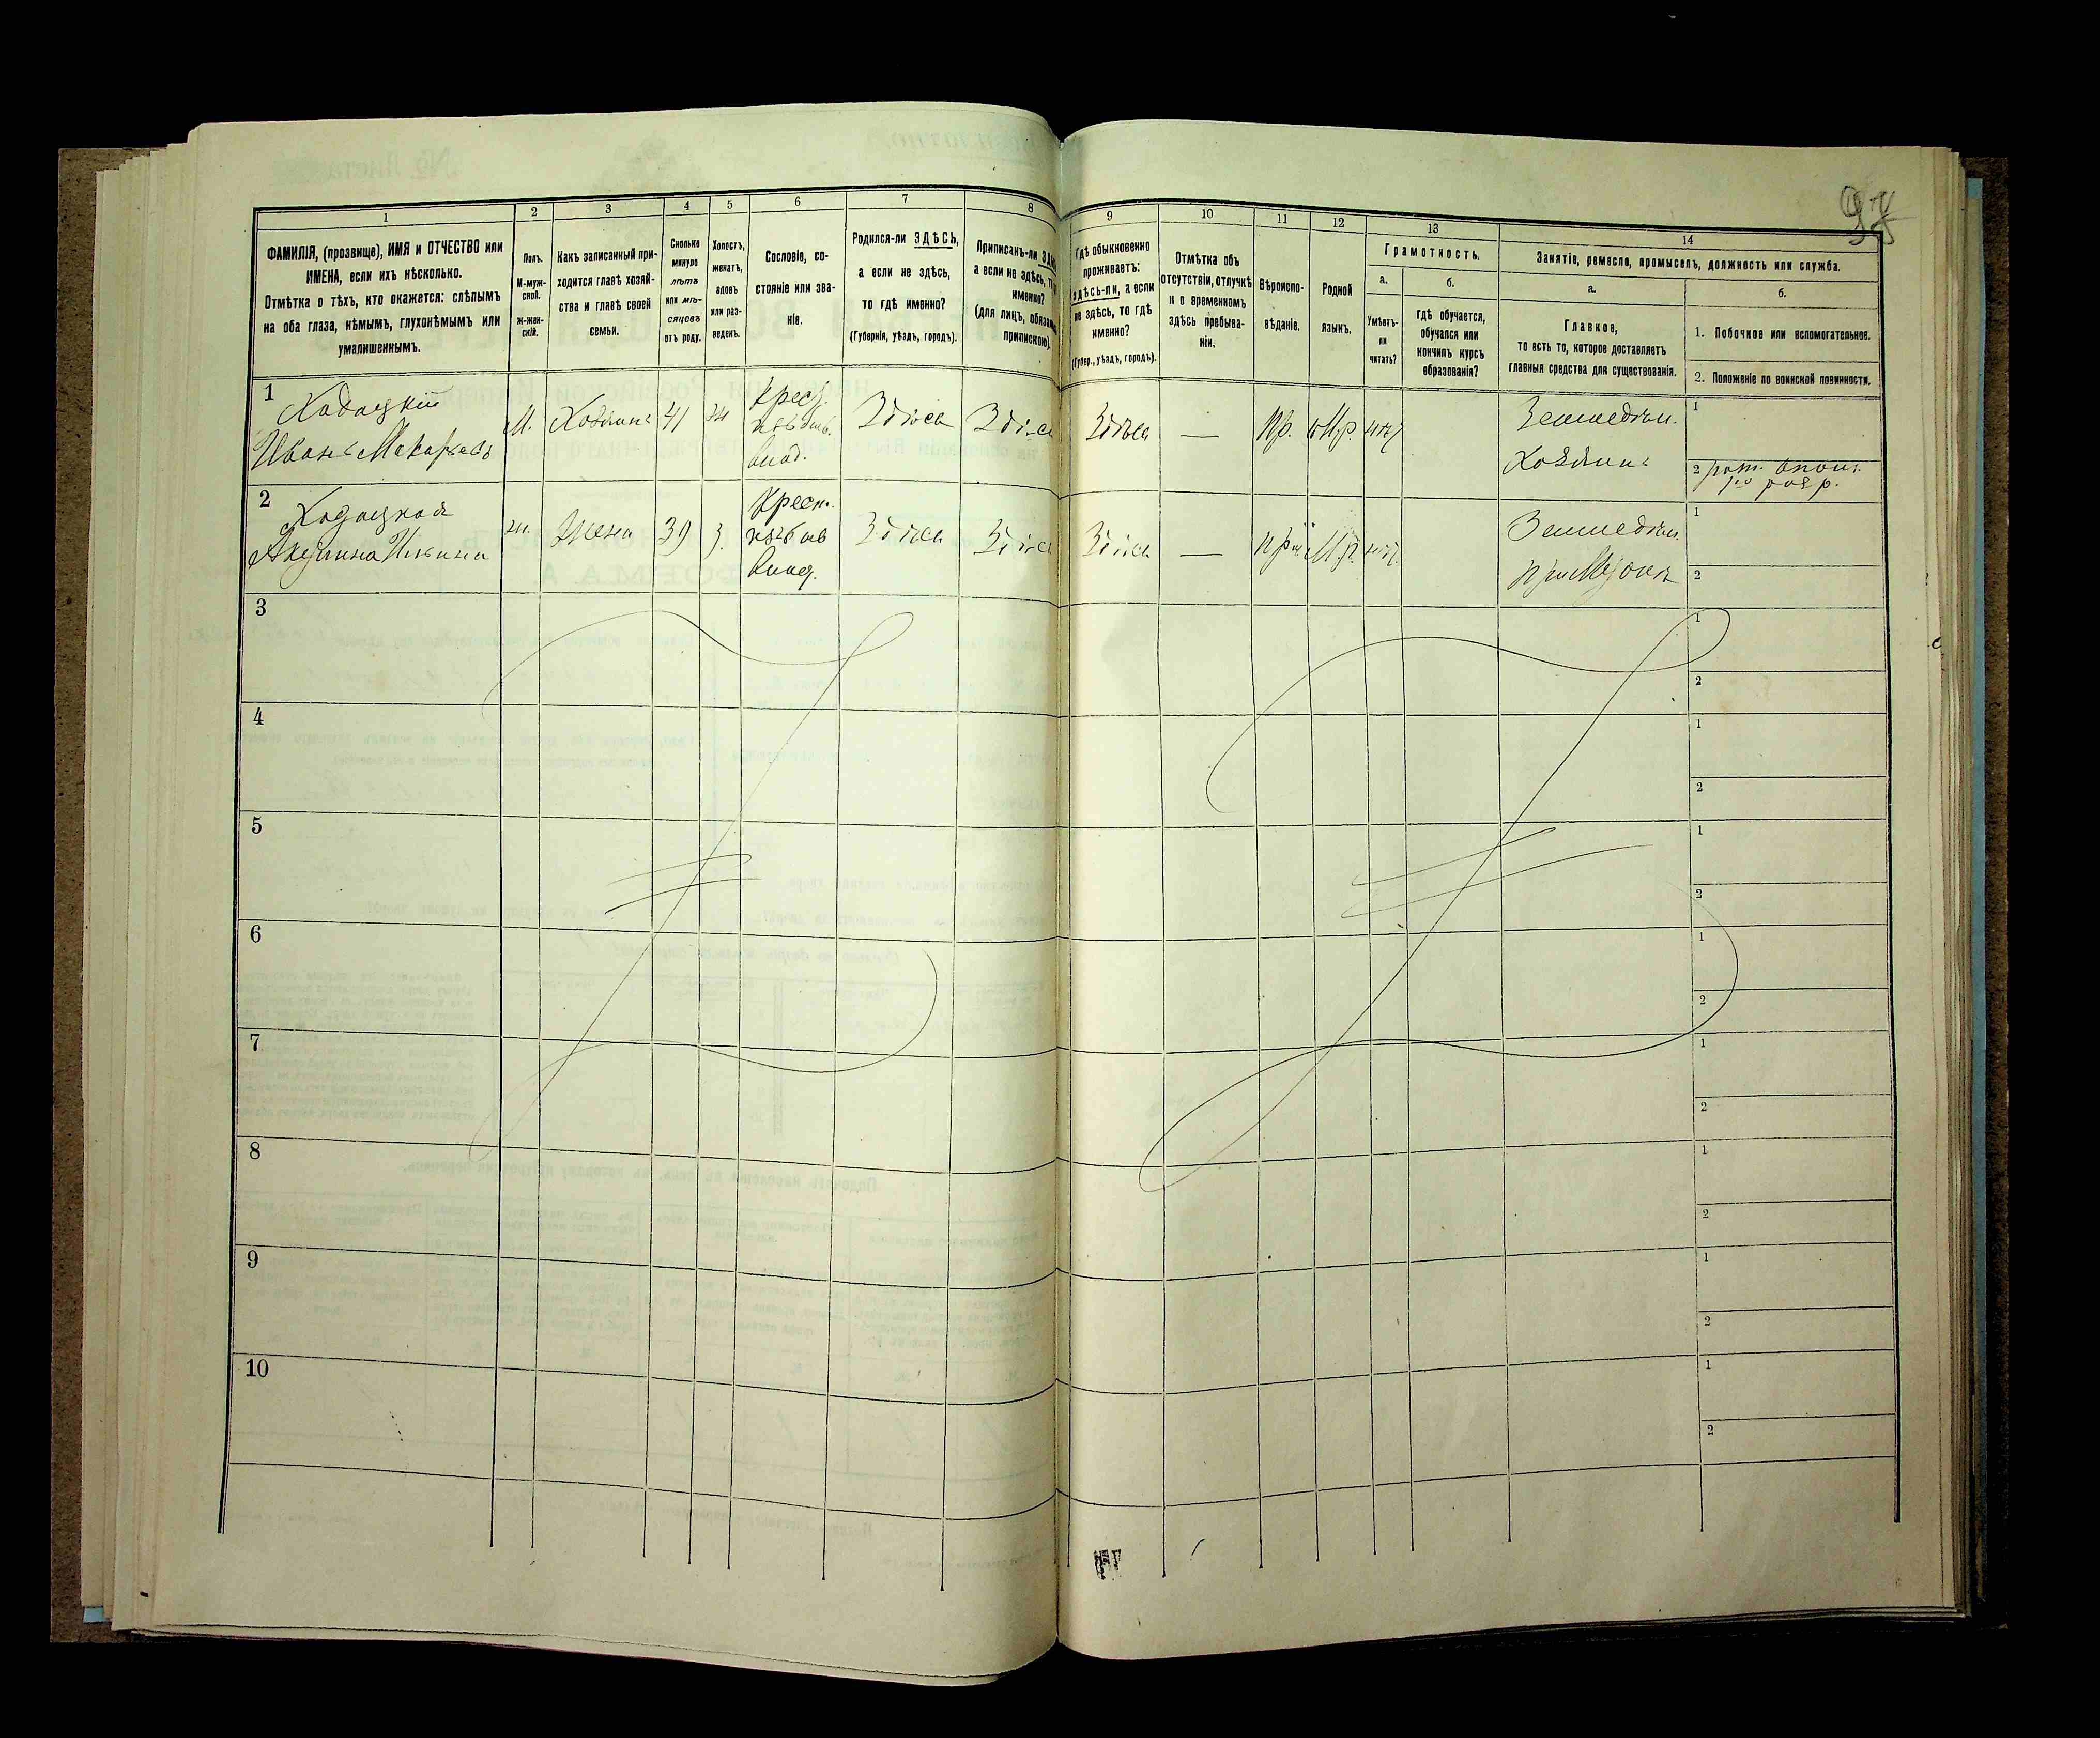 94
1
2
3
4
5
6
7
8
9
10
11
12
13
14
ФАМИЛІЯ, (прозвище), ИМЯ и ОТЧЕСТВО или
ИМЕНА, если ихъ нѣсколько.
Отмѣтка о тѣхъ, кто окажется: слѣпымъ
на оба глаза, нѣмымъ, глухонѣмымъ или
умалишеннымъ.
Полъ.
М-муж-
ской.
ж-жен-
скій.
Какъ записанный при-
ходится главѣ хозяй-
ства и главѣ своей
семьи.
Сколько
минуло
лѣтъ
или мѣ-
сяцевъ
отъ роду.
Холостъ,
женатъ,
вдовъ
или раз-
веденъ.
Сословіе, со-
стояніе или зва-
ніе.
Родился-ли ЗДѢСЬ,
а если не здѣсь,
то гдѣ именно?
(Губернія, уѣздъ, городъ).
Приписанъ-ли
а если не здѣсь,
именно?
(для лицъ,
припискою).
Гдѣ обыкновенно
проживаетъ:
здѣсь-ли, а если
не здѣсь, то гдѣ
именно?
(Губер., уѣздъ, городъ).
Отмѣтка объ
отсутствіи, отлучкѣ
и о временномъ
здѣсь пребыва-
ніи.
Вѣроиспо-
вѣданіе.
Родной
языкъ.
Грамотность.
а.
Умѣетъ-
ли
читать?
б.
гдѣ обучается,
обучался или
кончилъ курсъ
образованія?
Занятіе, ремесло, промыселъ, должность или служба.
а.
Главное,
то есть то, которое доставляетъ
главныя средства для существованія.
б.
1. Побочное или вспомогательное.
2. Положеніе по воинской повинности.
1
Ходацкій
Иванъ Макарьевъ
М.
Хозяинъ
41
Крест.
Здѣсь
Здѣсь
Здѣсь
—
Пр.
М.р.
нѣт
Земледѣл.
Хозяинъ
1
2
рат. опол.
1го разр.
2
Ходацкая
Акулина Ильина
ж.
Жена
39
З.
Крест.
Здѣсь
Здѣсь
Здѣсь
—
М.р.
нѣт.
Земледѣл.
при Мужѣ
1
2
3
1
2
4
1
2
5
1
2
6
1
2
7
1
2
8
1
2
9
1
2
10
1
2